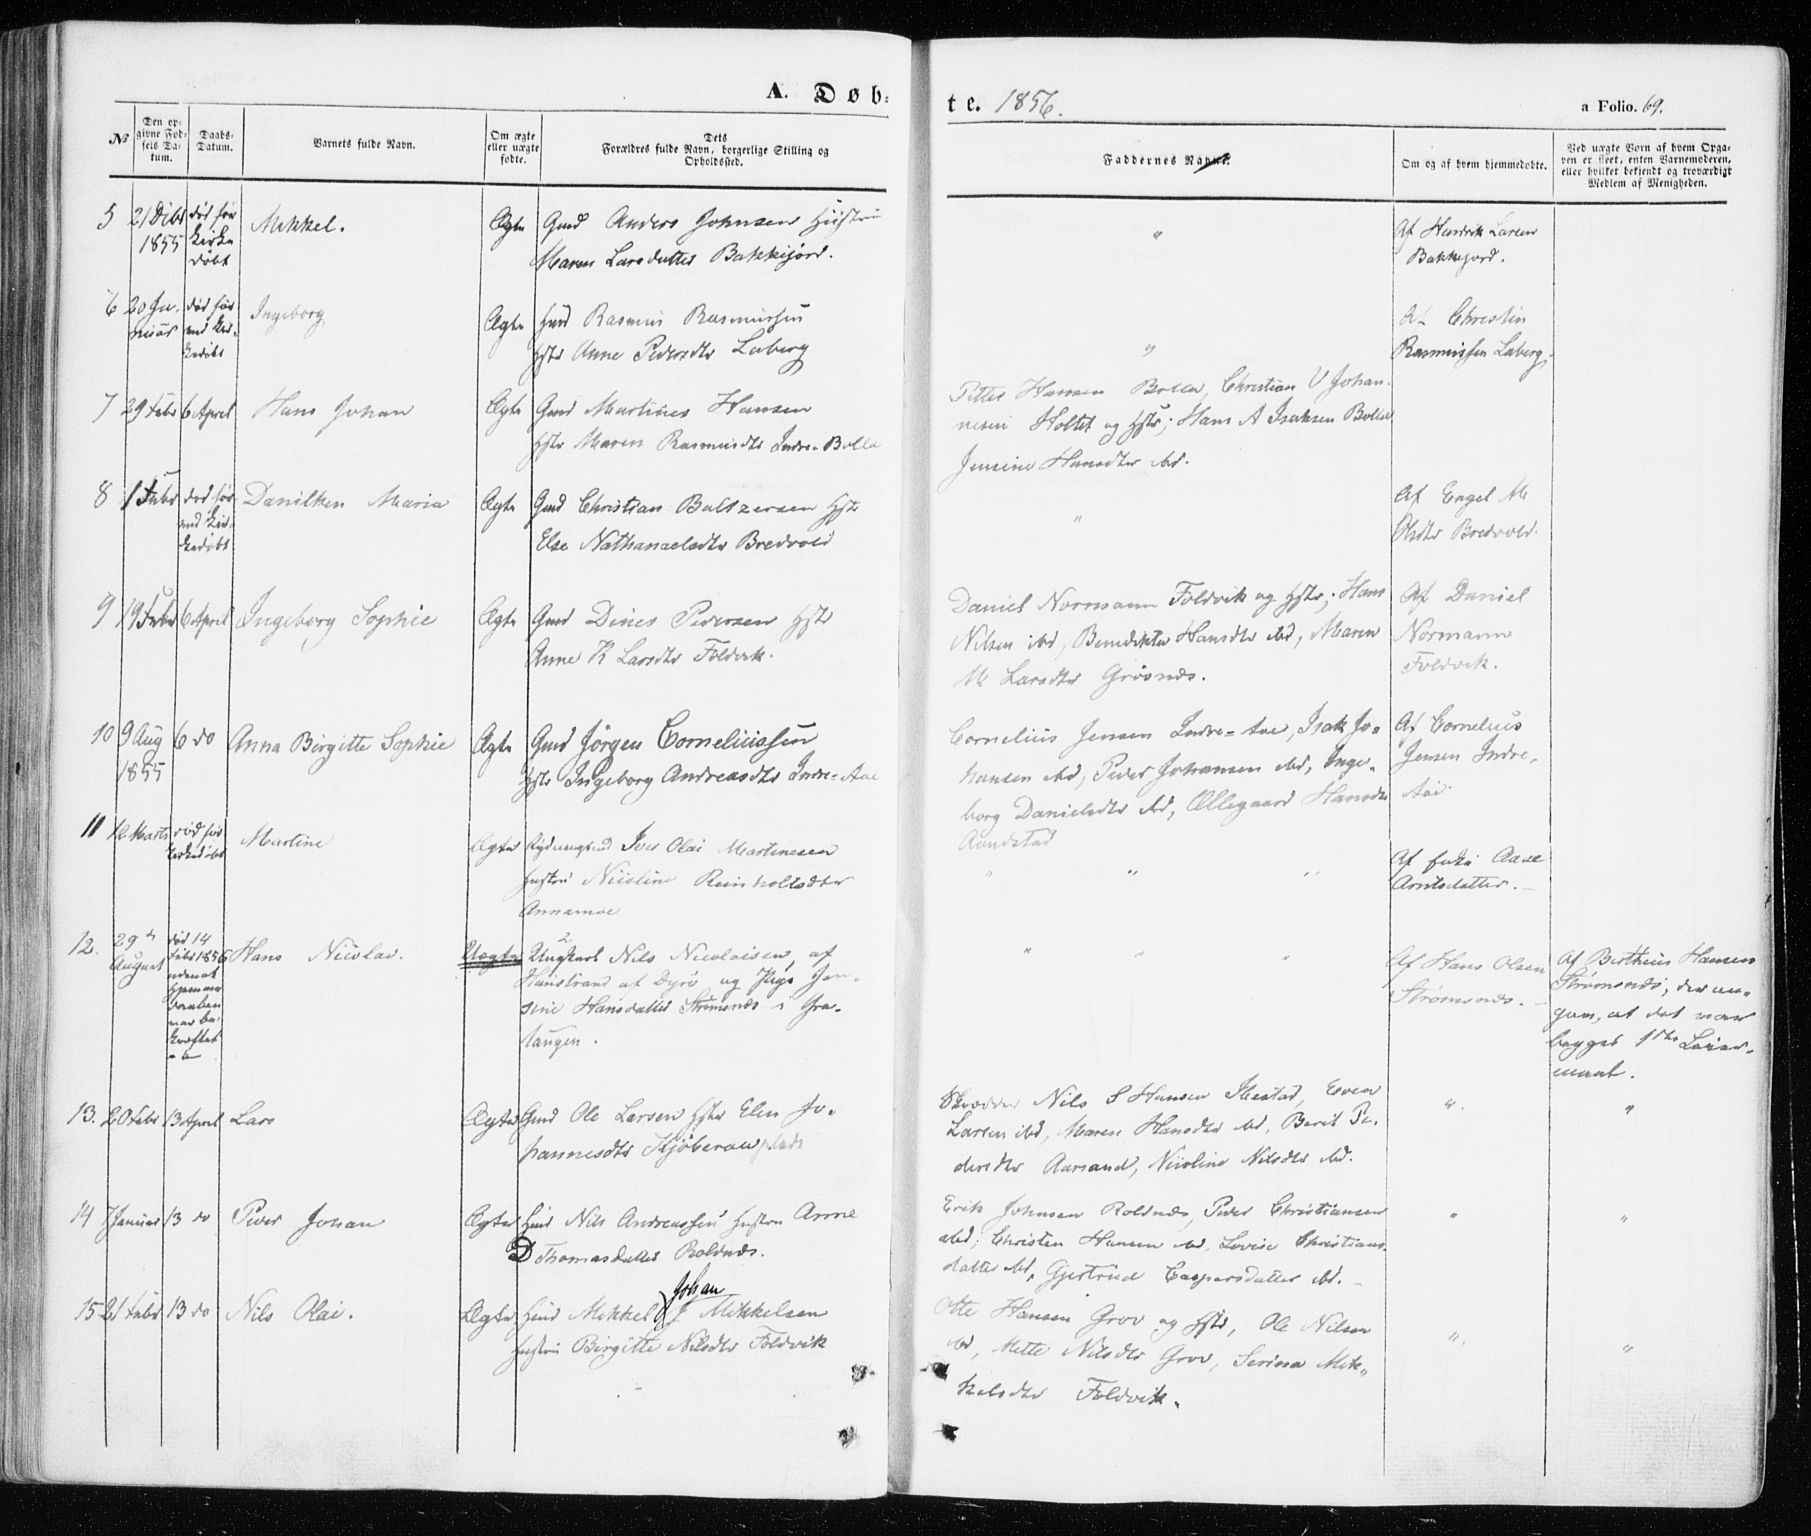 A. Døb-
te. 1856.
a Folio. 69.
№
Den op-
givne Fød-
sels Da-
tum.
Daabs-
Datum.
Barnets fulde Navn.
Om ægte
eller uægte
fødte.
Dets
Forældres fulde Navn, borgerlige Stilling og
Opholdssted.
Faddernes Navne.
Om og af hvem hjemmedøbte.
Ved uægte Børn af hvem Opga-
ven er skeet, enten Barnemoderen,
eller hvilket bekjendt og troværdigt
Medlem af Menigheden.
5 21 Dibr
1855
død før
kirke
døbt
Mikkel.
Ægte
Gmd Anders Johnsen Hustru
Maren Larsdatter Bakkejord.
"
Af Hendrik Larsen
Bakkejord.
6 20 Ja-
nuar
død før
end kir-
kedøbt
Ingeborg
Ægte
Hmd Rasmus Rasmussen
Hstr Anne Pedersdtr Laberg
"
Af Christin
Rasmussen Laberg.
7 29 Febr 6 April
Hans Johan
Ægte
Gmd Martines Hansen
Hstr Maren Rasmusdtr Indre-Bolla
Petter Hansen Bolla, Christian V Johan-
nesen Holtet og Hstr; Hans A Isaksen Bolla
Jensine Hansdtr ibd.
8 1 Febr
død før
end kir-
kedøbt
Danikken Maria
Ægte
Gmd Christian Baltzersen Hstr
Else Nathanaelsdtr Bredvold
"
Af Engel M
Olsdtr Bredvold.
9 19 Febr 6 April
Ingeborg Sophie
Ægte
Gmd Dines Pedersen Hstr
Anne K Larsdtr Foldvik.
Daniel Normann Foldvik og Hstr; Hans
Nilsen ibd, Benedikte Hansdtr ibd, Maren
M Larsdtr Grøsnes.
Af Daniel
Normann
Foldvik.
10 9 Aug
1855
6 do
Anna Birgitte Sophie
Ægte
Gmd Jørgen Corneliussen
Hstr Ingeborg Andreasdtr Indre-Aae
Cornelius Jensen Indre-Aae, Isak Jo-
hansen ibd, Peder Johansen ibd, Inge-
borg Danielsdtr ibd, Ællegaard Hansdtr
Aandstad
Af Cornelius
Jensen Indre-
Aae.
11 12 Marts
død før
kirkedøbt
Martine
Ægte
Iver Olai Martinesen
Hustru Nicoline Reinholtsdtr
Annamoe
" " "
Af Enke Aase
Arntsdatter.
12. 29de
August
død 14
Febr 1856
uden at
hjemme
daaben
var be-
kræftet
Hans Nicolai.
Uægte
Ungkarl Nils Nicolaisen, af
Haustrand af Dyrø og Pige Jen-
sine Hansdatter Strømsnes i Gra-
tangen.
" " "
Af Hans Olsen
Strømsnes.
Af Bertheus Hansen
Strømsnes; der an-
gav, at det var
begges 1ste Leier-
maal.
13. 20 Febr 13 April
Lars
Ægte
Gmd Ole Larsen Hstr Elen Jo-
hannesdtr Kjøberau plads
Skrædder Nils S Hansen Ibestad, Even
Larsen ibd, Maren Hansdtr ibd, Berit Pe-
dersdtr Aarsand, Nicoline Nilsdtr ibd.
"
"
14 7 Januar 13 do
Peder Johan
Ægte
Hmd Nils Andreassen Hustru Anne
D Thomasdatter Roldnes.
Erik Johnsen Roldnes, Peder Christiansen
ibd; Christen Hansen ibd, Lovise Christians-
datter ibd, Gjertrud Caspersdatter ibd.
"
"
15 21 Febr 13 do
Nils Olai.
Ægte
Johan
Hmd Mikkel J Mikkelsen
Hustru Birgitte Nilsdtr Foldvik
Otte Hansen Grov og Hstr, Ole Nilsen
ibd, Mette Nilsdtr Grov, Serina Mik-
kelsdtr Foldvik.
"
"